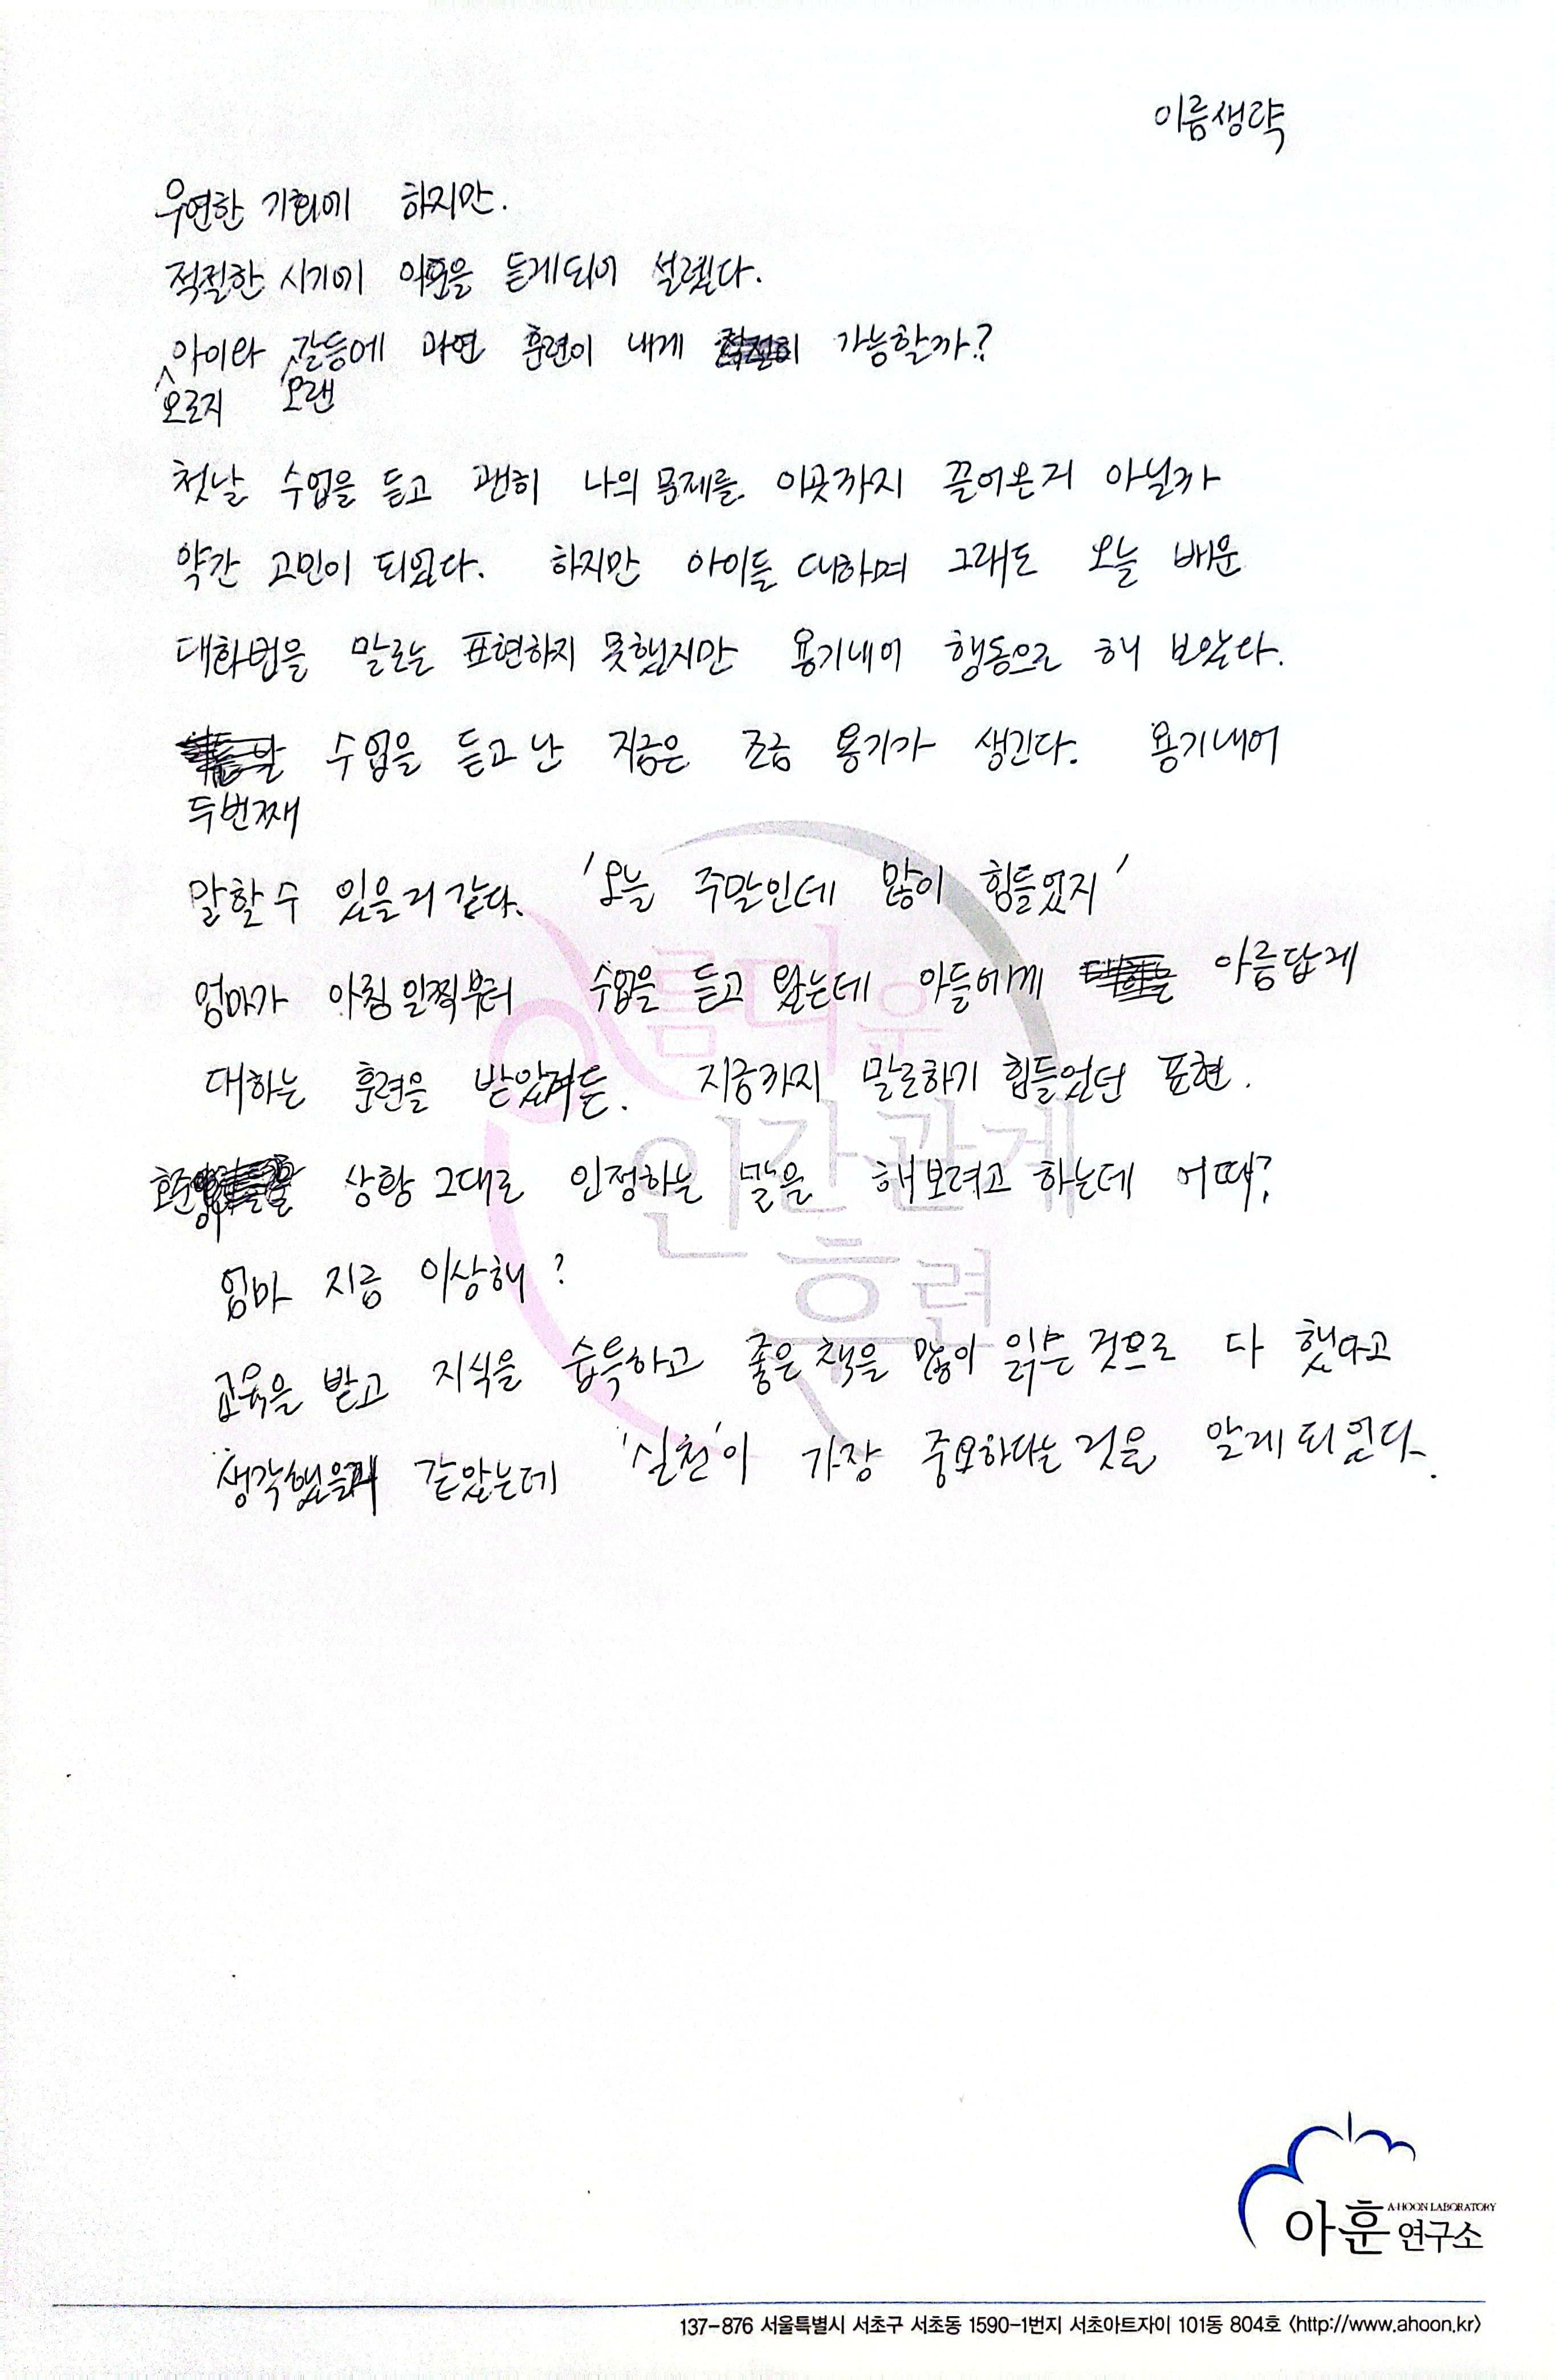 이름생략
우연한 기회에 하지만.
적절한 시기에 아훈을 듣게되어 설렜다.
아이와 갈등에 과연 훈련이 내게 가능할까?
오로지 오랜
첫날 수업을 듣고 괜히 나의 문제를 이곳까지 끌어온거 아닐까
약간 고민이 되었다. 하지만 아이들 대하며 그래도 오늘 배운
대화법을 말로는 표현하지 못했지만 용기내어 행동으로 해 보았다.
수업을 듣고 난 지금은 조금 용기가 생긴다. 용기내어
두번째
말할 수 있을거 같다. '오늘 주말인데 많이 힘들었지'
엄마가 아침 일찍부터 수업을 듣고 왔는데 아들에게 아름답게
대하는 훈련을 받았거든. 지금까지 말로하기 힘들었던 표현.
상황 그대로 인정하는 말을 해보려고 하는데 어때?
엄마 지금 이상해?
교육을 받고 지식을 습득하고 좋은 책을 많이 읽은 것으로 다 했다고
생각했을거 같았는데 '실천'이 가장 중요하다는 것을 알게 되었다.
아름다운
인간관계
훈련
A-HOON LABORATORY
아훈 연구소
137-876 서울특별시 서초구 서초동 1590-1번지 서초아트자이 101동 804호 <http://www.ahoon.kr>